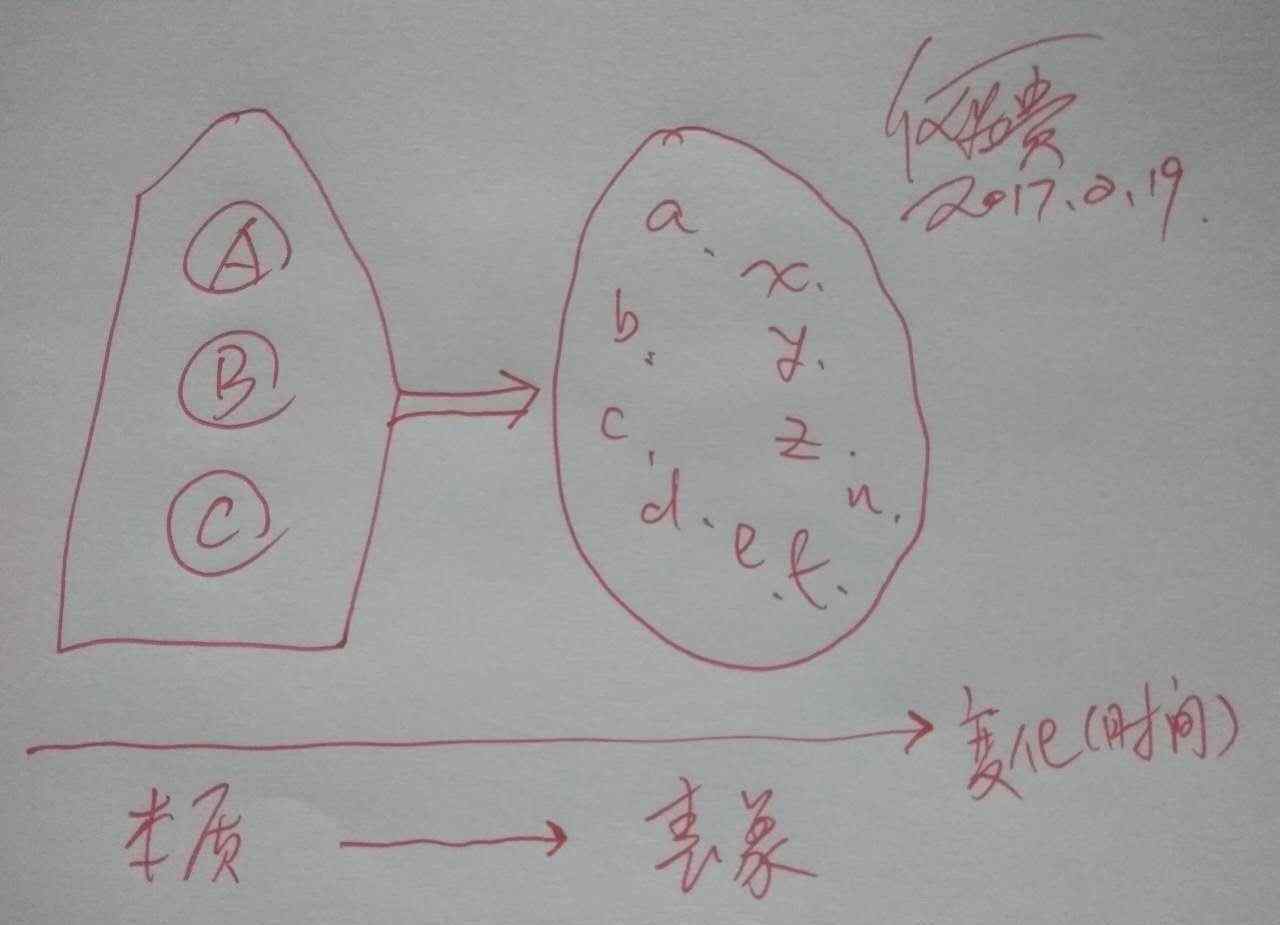 2017.2.19.
A
B
C
a.
b.
c.
d.
e.
f.
x.
y.
z.
n.
变化(时间)
本质
表象